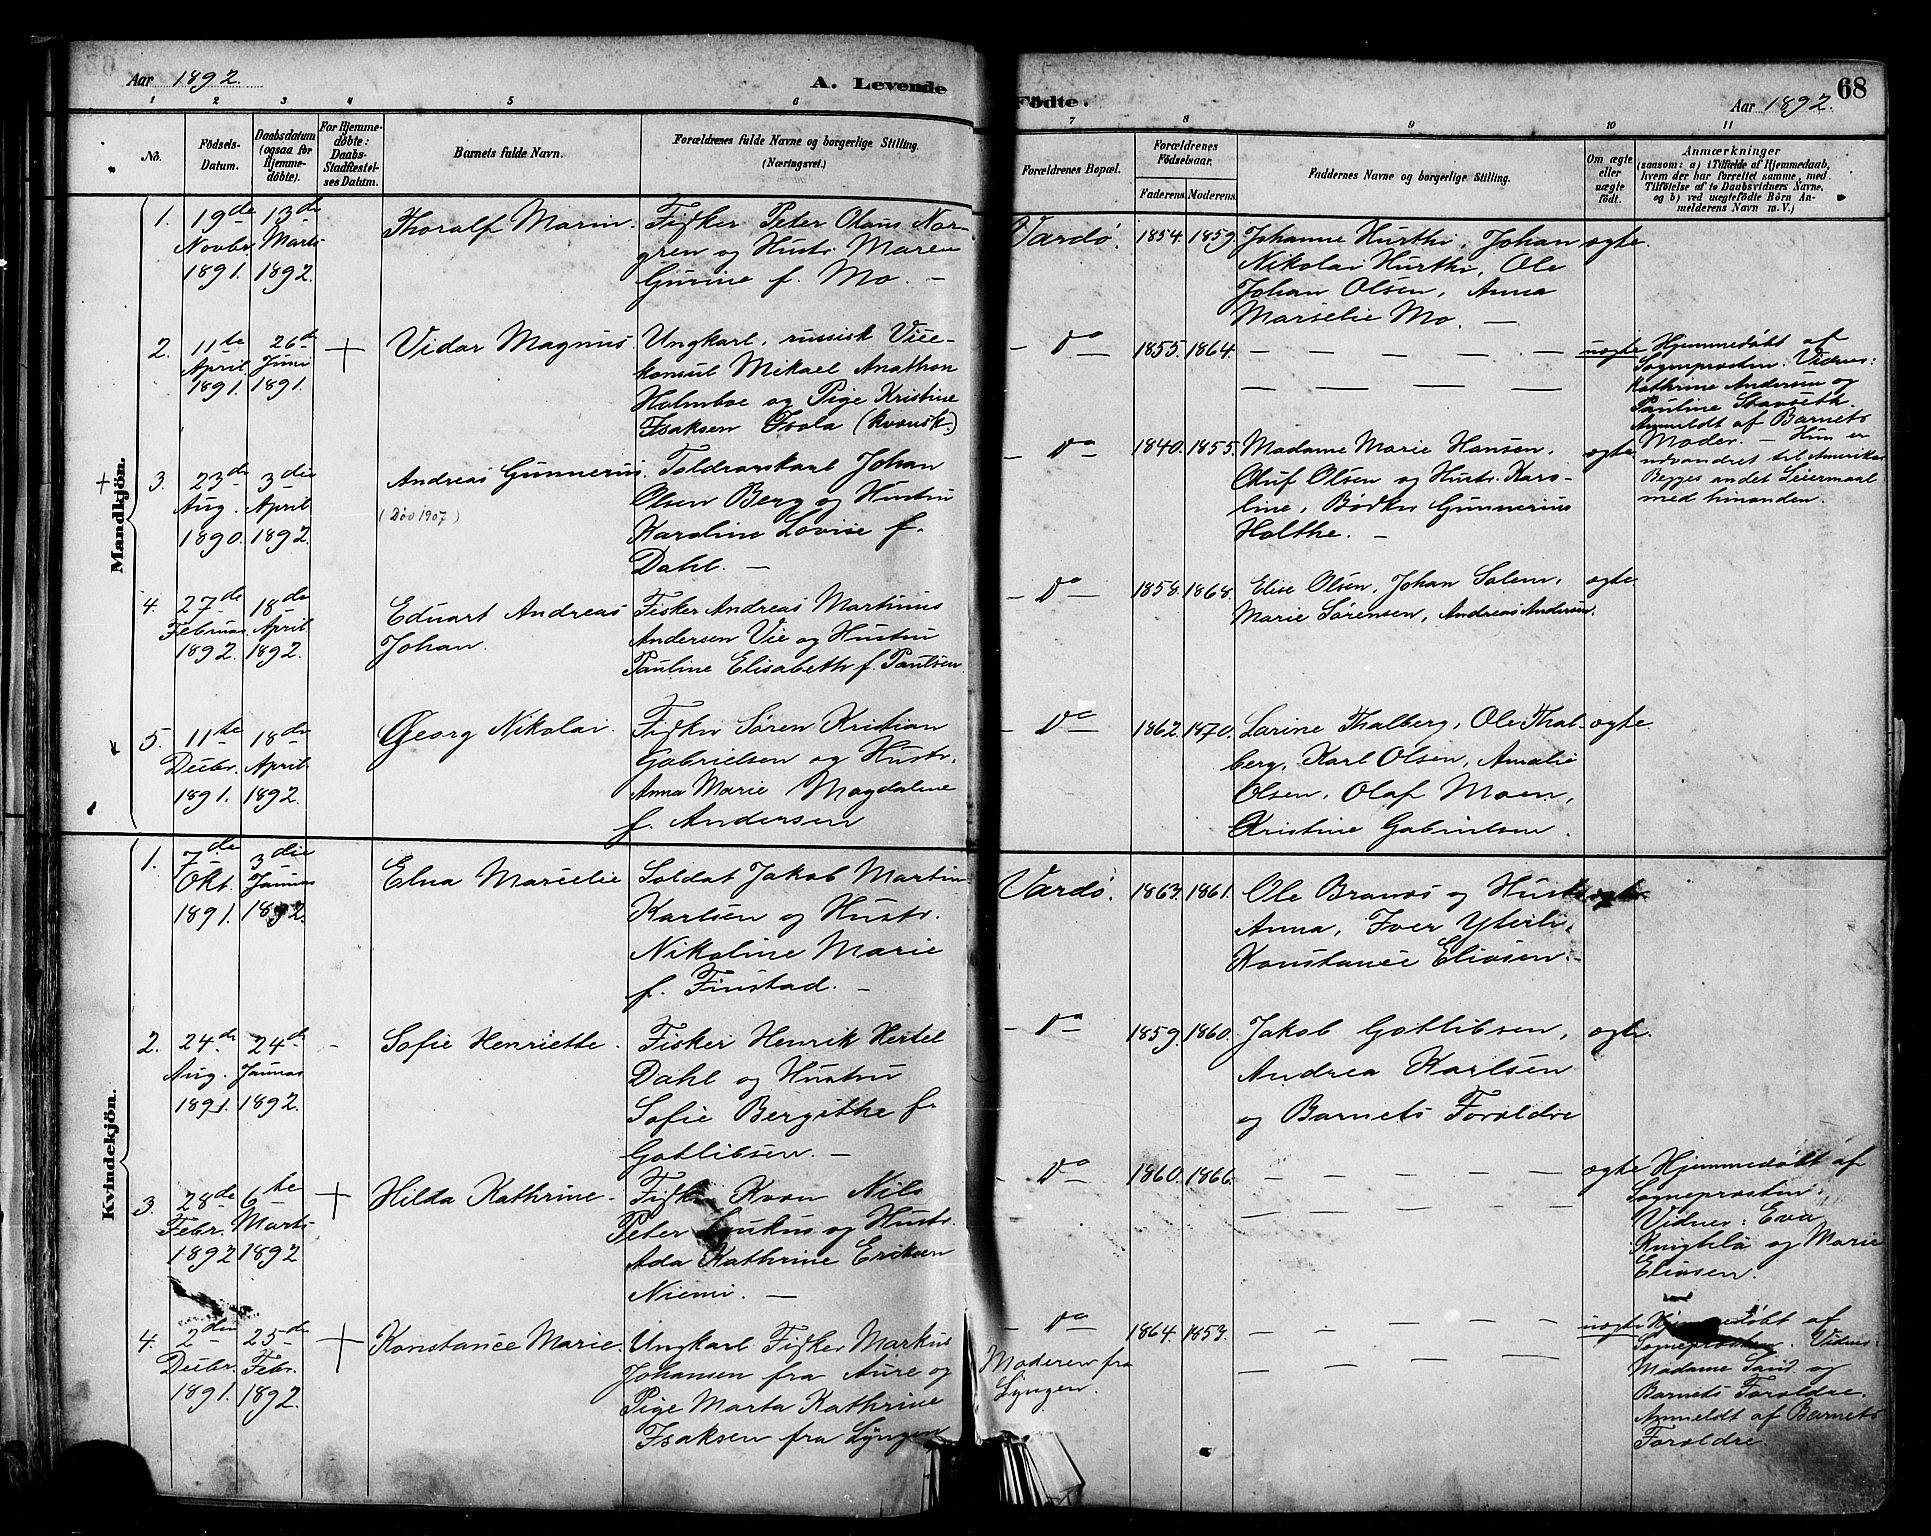 Aar 1892.
A. Levende
1 2 3 4 5 6
No.
Födsels-
Datum.
Daabsdatum
(ogsaa for
Hjemme-
döbte).
For Hjemme-
döbte:
Daabs-
Stadfæstel-
ses Datum.
Barnets fulde Navn.
Forældrenes fulde Navne og borgerlige Stilling.
(Næringsvei.)
Mandkjön.
1. 19de 13de Thoralf Marin. Fisker Peter Olaus Nor-
Novbr. Marts gren og Hustr. Maren
1891. 1892. Gurine f. Mo. —
2. 11te 26de + Vidar Magnus. Ungkarl, russisk Vice-
April Juni konsul Mikael Anathon
1891. 1891. Holmboe og Pige Kristine
Isaksen Isola (kvænsk.)
+
3. 23de 3die Andreas Gunnerius. Toldrorskarl Johan
Aug. April (Döv 1907) Olsen Berg og Hustru
1890. 1892. Karoline Lovise f.
Dahl. —
4. 27de 18de Eduart Andreas Fisker Andreas Martinus
Februar April Johan. Andersen Vie og Hustru
1892. 1892. Pauline Elisabeth f. Paulsen
5. 11te 18de Georg Nikolai. Fisker Sören Kristian
Decbr. April Gabrielsen og Hustr.
1891. 1892. Anna Marie Magdalene
f. Andersen
Kvindekjön.
1. 7de 3die Elna Marcelie Soldat Jakob Martin
Okt. Januar Karlsen og Hustr.
1891. 1892. Nikoline Marie
f. Finstad. —
2. 24de 24de - Sofie Henriette. Fisker Henrik Hertel
Aug. Januar Dahl og Hustru
1891. 1892. Sofie Bergithe f.
Gotlibsen. —
3. 28de 6te + Hilda Kathrine. Fisker Kvæn Nils
Febr. Marts Peter og Hustr.
1892 1892 Ada Kathrine Eriksen
Niemi. —
4. 2den 25de + Konstance Marie. Ungkarl Fisker Markus
Decbr. Febr. Johansen fra Aure og
1891. 1892. Pige Marta Kathrine
Isaksen fra Lyngen
Födte.
Aar 1892.
68
7 8 9 10 11
Forældrenes Bopæl.
Forældrenes
Födselsaar.
Faderens. Moderens.
Faddernes Navne og borgerlige Stilling.
Om ægte
eller
uægte
födt.
Anmærkninger
(saasom: a) i Tilfælde af Hjemmedaab,
hvem der har forrettet samme, med
Tilföielse af to Daabsvidners Navne,
og b) ved uægtefödte Börn An-
melderens Navn m. V.)
Vardö. 1854. 1859. Johanne Hurthi, Johan ægte.
Nikolai Hurthi, Ole
Johan Olsen, Anna
Marselie Mo. —
— Do — 1855. 1864. — — — — — uægte Hjemmedöbt af
Sogneprosten. Vidner:
Kathrine Andersen og
Pauline Stavseth.
Anmeldt af Barnets
Moder. — Hun er
udvandret til Amerika.
Begges andet Leiermaal
med hinanden.
— Do — 1840. 1855. Madame Marie Hansen, ægte.
Oluf Olsen og Hustr. Karo-
line, Bödker Gunnerius
Holthe. —
— Do — 1858. 1868. Elise Olsen, Johan Salem, ægte
Marie Sörensen, Andreas Andersen.
Do — 1862. 1870. Larine Thalberg, Ole Thal- ægte.
berg, Karl Olsen, Amalie
Olsen, Olaf Moen,
Kristine Gabrielsen.
Vardö. 1863. 1861. Ole Brænæs og Hustr. ægte.
Anna, Iver Yterli,
Konstance Eliasen. -
— Do — 1859. 1860. Jakob Gotlibsen, ægte.
Andrea Karlsen
og Barnets Forældre
- Do — 1860. 1866. — — — — — ægte Hjemmedöbt af
Sogneprosten.
Vidner: Eva
og Marie
Eliasen.
— Do — 1864. 1859. — — — — — uægte Hjemmedöbt af
Moderen fra Sogneprosten. Vidner:
Lyngen. Madame Sand og
Barnets Forældre.
Anmeldt af Barnets
Forældre.